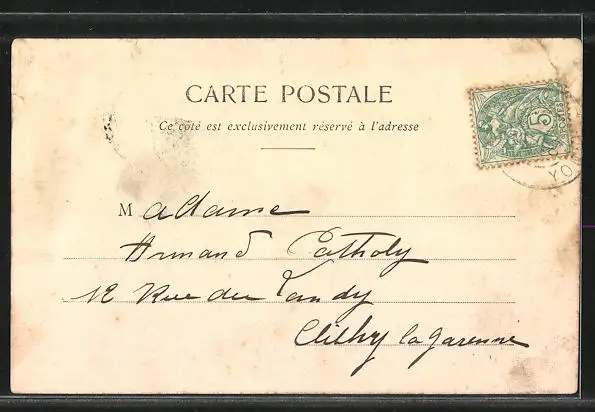 CARTE POSTALE
Ce côté est exclusivement réservé à l'adresse
Madame
Armand Catholy
12 Rue du Landy
Clichy la Garenne
5